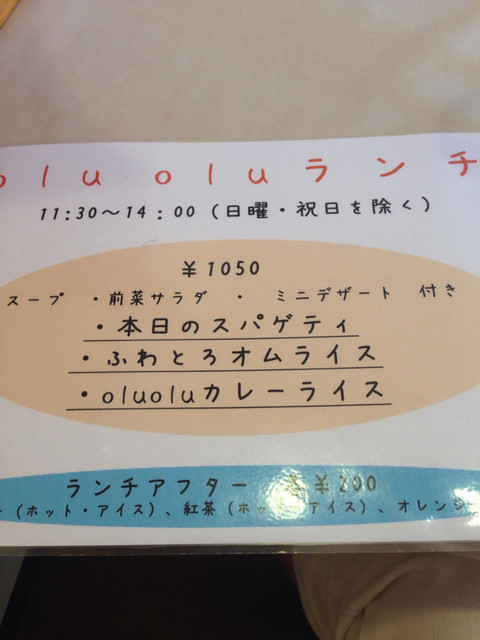 olu oluランチ
11:30〜14:00(日曜・祝日を除く)
¥1050
スープ ・前菜サラダ ・ ミニデザート 付き
・本日のスパゲティ
・ふわとろオムライス
・oluoluカレーライス
ランチアフター ¥200
(ホット・アイス)、紅茶(ホット・アイス)、オレンジ